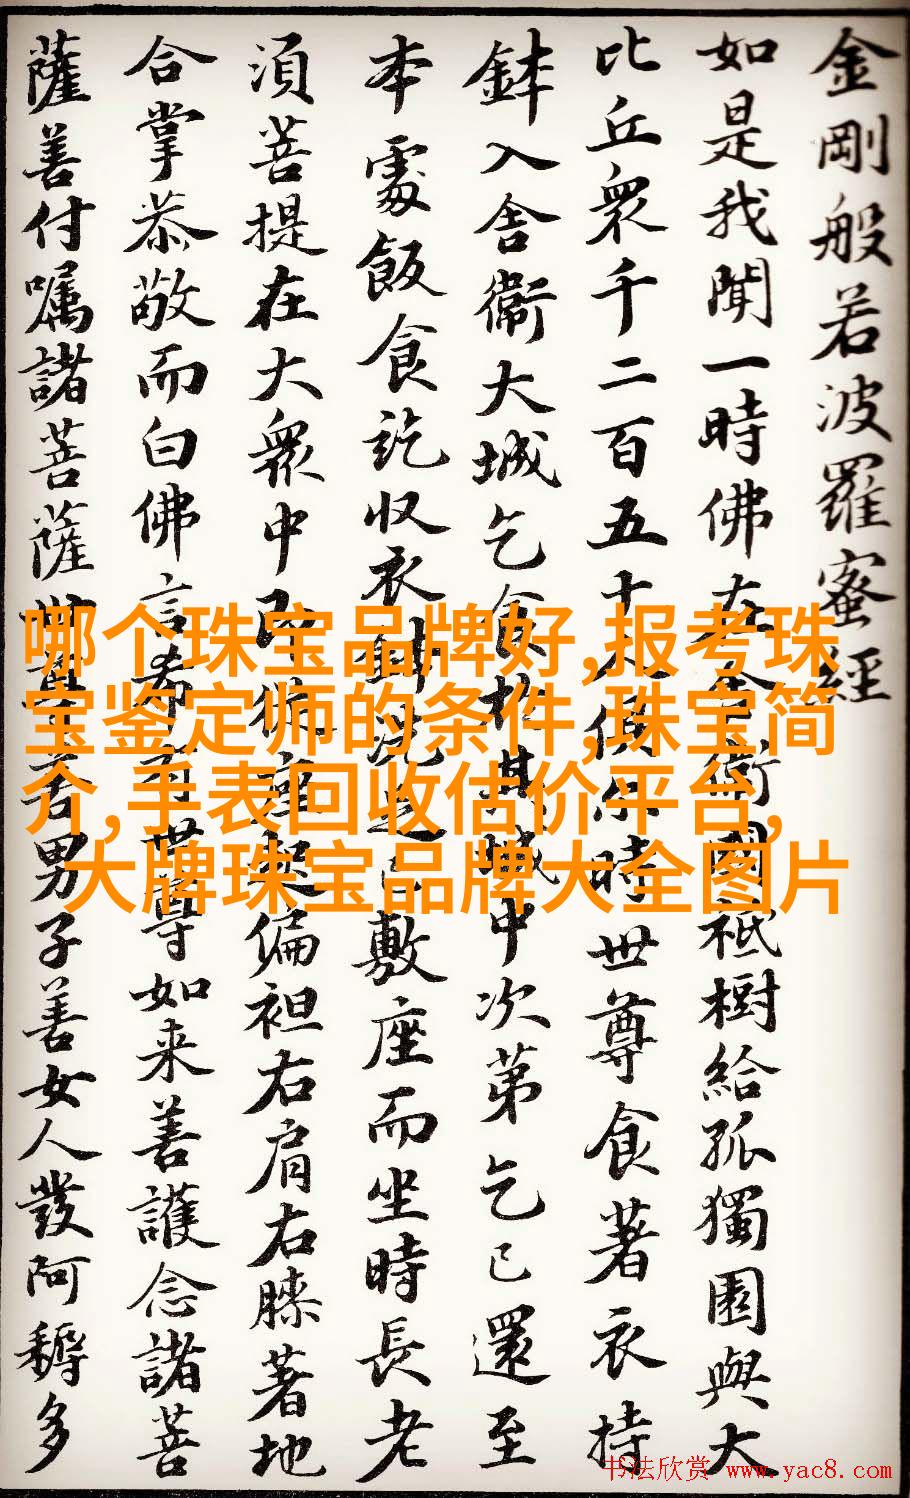 金剛般若波羅蜜經
如是我聞一時佛在舍衛國祇樹給孤獨園與大
比丘衆千二百五十人俱尒時世尊食著衣持
鉢入舍衛大城乞食於其城中次第乞已還至
本處飯食訖收衣鉢洗足已敷座而坐時長老
須菩提在大衆中即從座起偏袒右肩右膝著地
合掌恭敬而白佛言希有世尊如来善護念諸菩
薩善付囑諸菩薩世尊善男子善女人發阿耨多
哪个珠宝品牌好,报考珠
宝鉴定师的条件,珠宝简
介,手表回收估价平台,
大牌珠宝品牌大全图片
书法欣赏 www.yac8.com